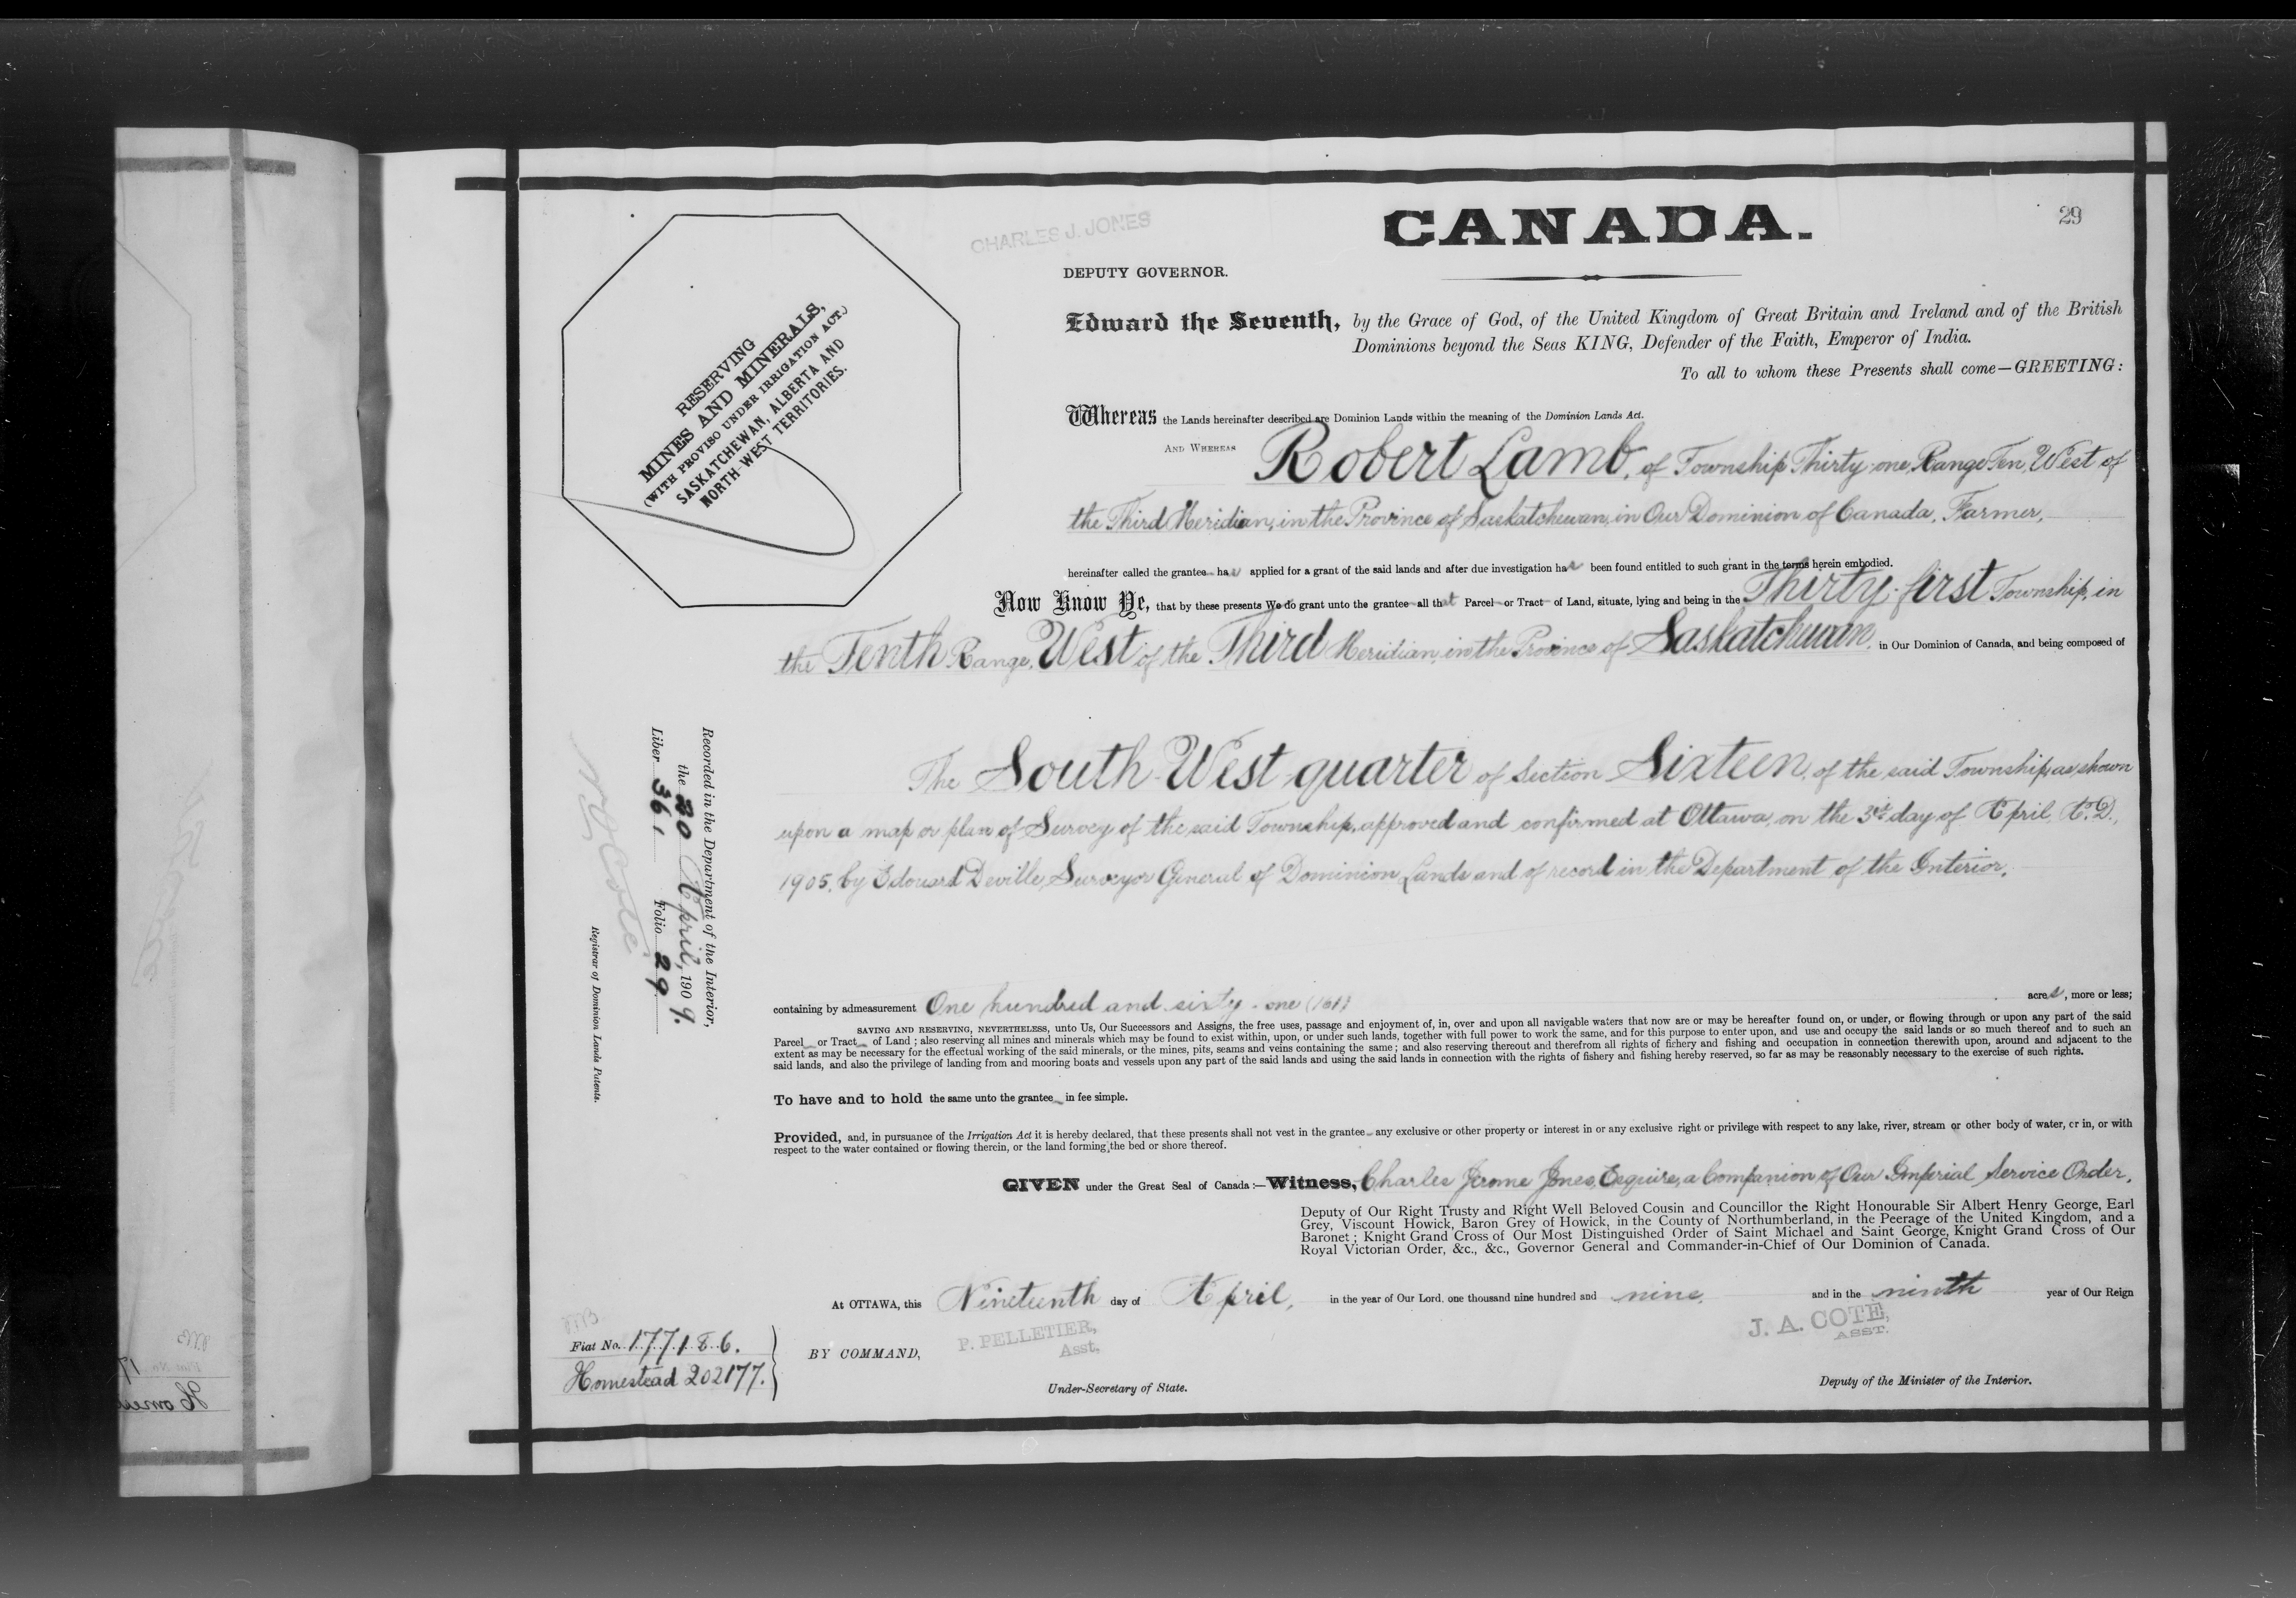 CANADA.
29
CHARLES J. JONES
DEPUTY GOVERNOR.
RESERVING
MINES AND MINERALS,
(WITH PROVISO UNDER IRRIGATION ACT.)
SASKATCHEWAN, ALBERTA AND
NORTH-WEST TERRITORIES.
Edward the Seventh, by the Grace of God, of the United Kingdom of Great Britain and Ireland and of the British
Dominions beyond the Seas KING, Defender of the Faith, Emperor of India.
To all to whom these Presents shall come—GREETING:
Whereas the Lands hereinafter described are Dominion Lands within the meaning of the Dominion Lands Act.
AND WHEREAS Robert Lamb, of Township Thirty-one, Range Ten, West of
the Third Meridian, in the Province of Saskatchewan, in Our Dominion of Canada, Farmer,
hereinafter called the grantee has applied for a grant of the said lands and after due investigation has been found entitled to such grant in the terms herein embodied.
Now Know Ye, that by these presents We do grant unto the grantee all that Parcel or Tract of Land, situate, lying and being in the Thirty-first Township, in
the Tenth Range, West of the Third Meridian, in the Province of Saskatchewan, in Our Dominion of Canada, and being composed of
The South West quarter of Section Sixteen, of the said Township, as shown
upon a map or plan of Survey of the said Township, approved and confirmed at Ottawa, on the 3rd day of April, A.D.,
1905, by Edouard Deville, Surveyor General of Dominion Lands and of record in the Department of the Interior,
containing by admeasurement One hundred and sixty-one (161) acres, more or less;
SAVING AND RESERVING, NEVERTHELESS, unto Us, Our Successors and Assigns, the free uses, passage and enjoyment of, in, over and upon all navigable waters that now are or may be hereafter found on, or under, or flowing through or upon any part of the said
Parcel or Tract of Land; also reserving all mines and minerals which may be found to exist within, upon, or under such lands, together with full power to work the same, and for this purpose to enter upon, and use and occupy the said lands or so much thereof and to such an
extent as may be necessary for the effectual working of the said minerals, or the mines, pits, seams and veins containing the same; and also reserving thereout and therefrom all rights of fishery and fishing and occupation in connection therewith upon, around and adjacent to the
said lands, and also the privilege of landing from and mooring boats and vessels upon any part of the said lands and using the said lands in connection with the rights of fishery and fishing hereby reserved, so far as may be reasonably necessary to the exercise of such rights.
To have and to hold the same unto the grantee in fee simple.
Provided, and, in pursuance of the Irrigation Act it is hereby declared, that these presents shall not vest in the grantee any exclusive or other property or interest in or any exclusive right or privilege with respect to any lake, river, stream or other body of water, or in, or with
respect to the water contained or flowing therein, or the land forming the bed or shore thereof.
GIVEN under the Great Seal of Canada:—Witness, Charles Jerome Jones, Esquire, a Companion of Our Imperial Service Order,
Deputy of Our Right Trusty and Right Well Beloved Cousin and Councillor the Right Honourable Sir Albert Henry George, Earl
Grey, Viscount Howick, Baron Grey of Howick, in the County of Northumberland, in the Peerage of the United Kingdom, and a
Baronet; Knight Grand Cross of Our Most Distinguished Order of Saint Michael and Saint George, Knight Grand Cross of Our
Royal Victorian Order, &c., &c., Governor General and Commander-in-Chief of Our Dominion of Canada.
At OTTAWA, this Nineteenth day of April, in the year of Our Lord, one thousand nine hundred and nine, and in the ninth year of Our Reign
BY COMMAND,
P. PELLETIER,
Asst,
Under-Secretary of State.
J. A. COTE,
ASST.
Deputy of the Minister of the Interior.
Recorded in the Department of the Interior,
the 20 April, 1909.
Liber 361, Folio 29
Registrar of Dominion Lands Patents.
Fiat No. 177186.
Homestead 202177.